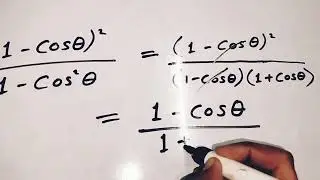 1 - Cosθ)² / 1 - Cos²θ = (1 - Cosθ)² / (1-Cosθ)(1+Cosθ)
= 1 - Cosθ / 1 -